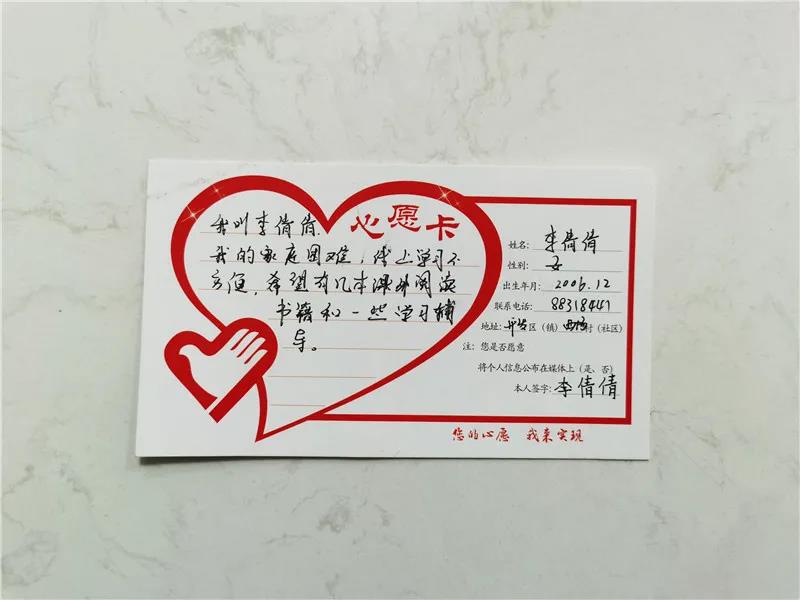 心愿卡
我叫李倩倩.
我的家庭困难,线上学习不
方便,希望有几本课外阅读
书籍和一些学习辅
导。
姓名: 李倩倩
性别: 女
出生年月: 2006.12
联系电话: 88318441
地址: 开发区(镇) 村(社区)
注: 您是否愿意
将个人信息公布在媒体上(是、否)
本人签字: 李倩倩
您的心愿 我来实现